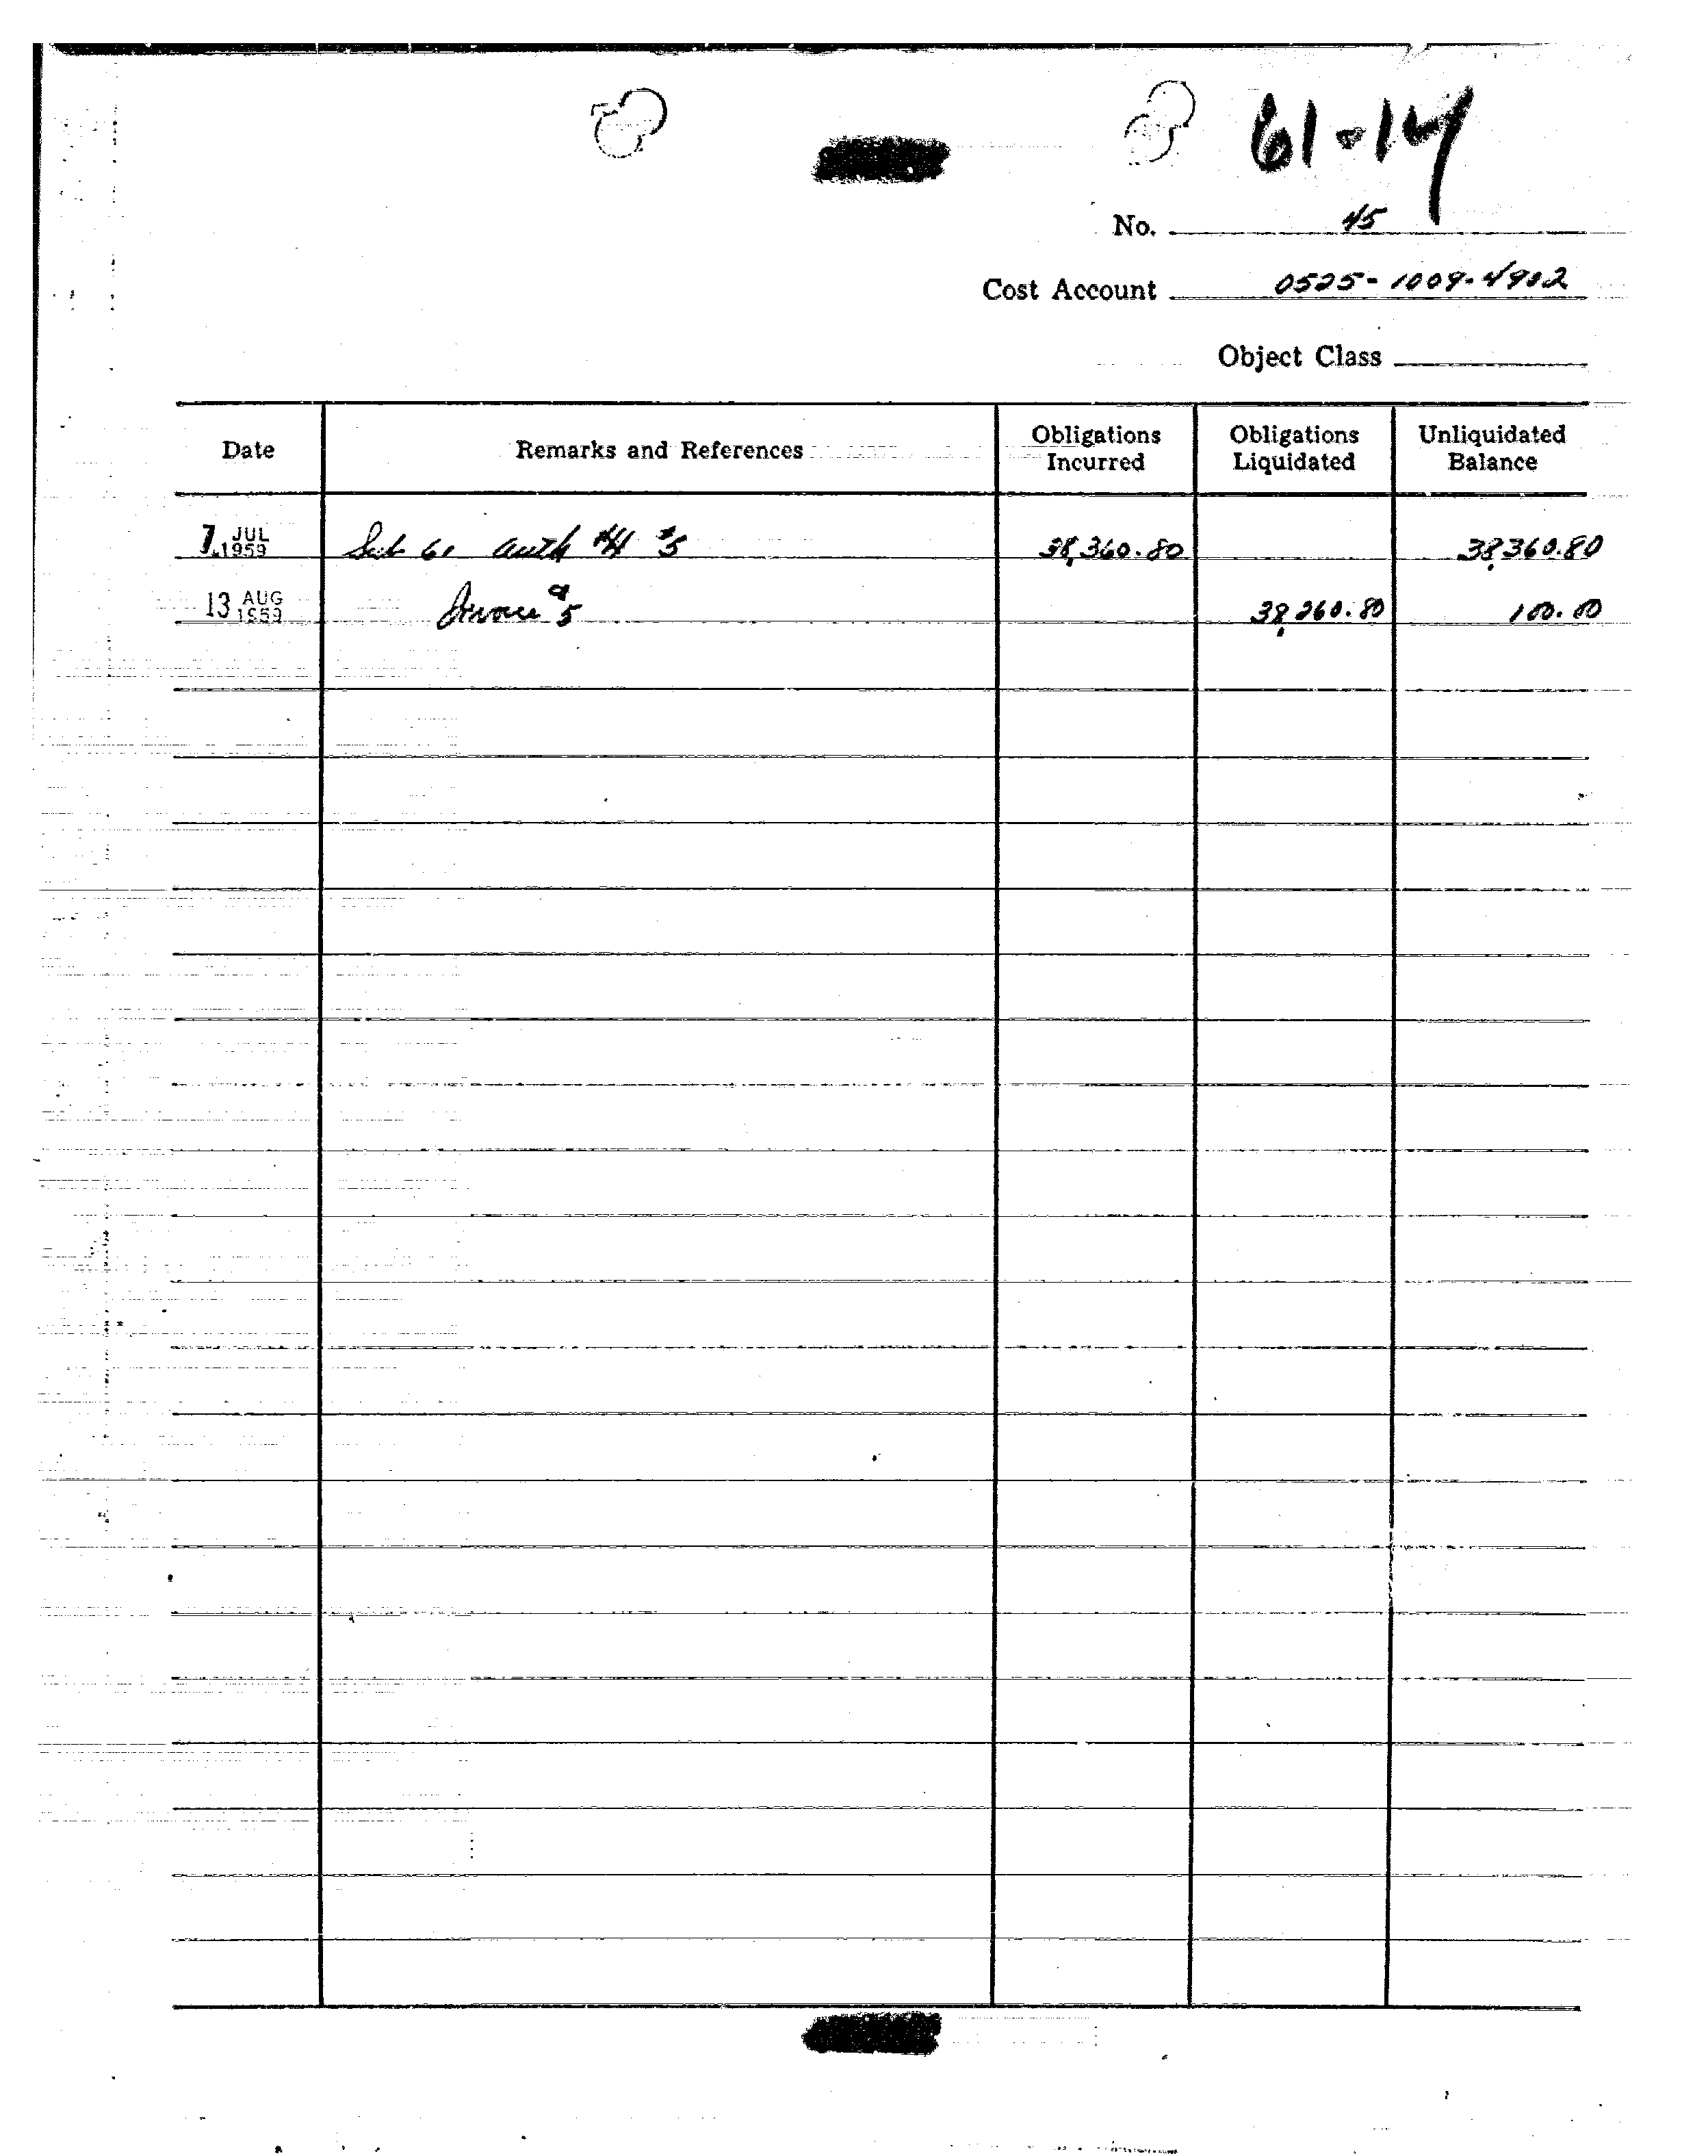 61-14
No. 45
Cost Account 0525-1009-4902
Object Class
Date Remarks and References Obligations Incurred Obligations Liquidated Unliquidated Balance
7 JUL 1959 Sub 61 auth #5 38,360.80 38,360.80
13 AUG 1959 Invoice #5 38,260.80 100.00